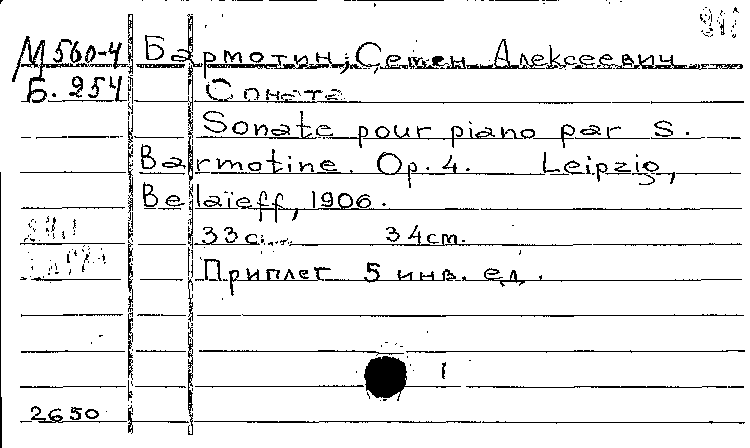 М 560-4 Бармотин, Семен Алексеевич
Б. 254 Соната
Sonate pour piano par S.
Barmotine. Op. 4. Leipzig,
Belaïeff, 1906.
33с. 34cm.
Приплет 5 инв. ед.
1
2650